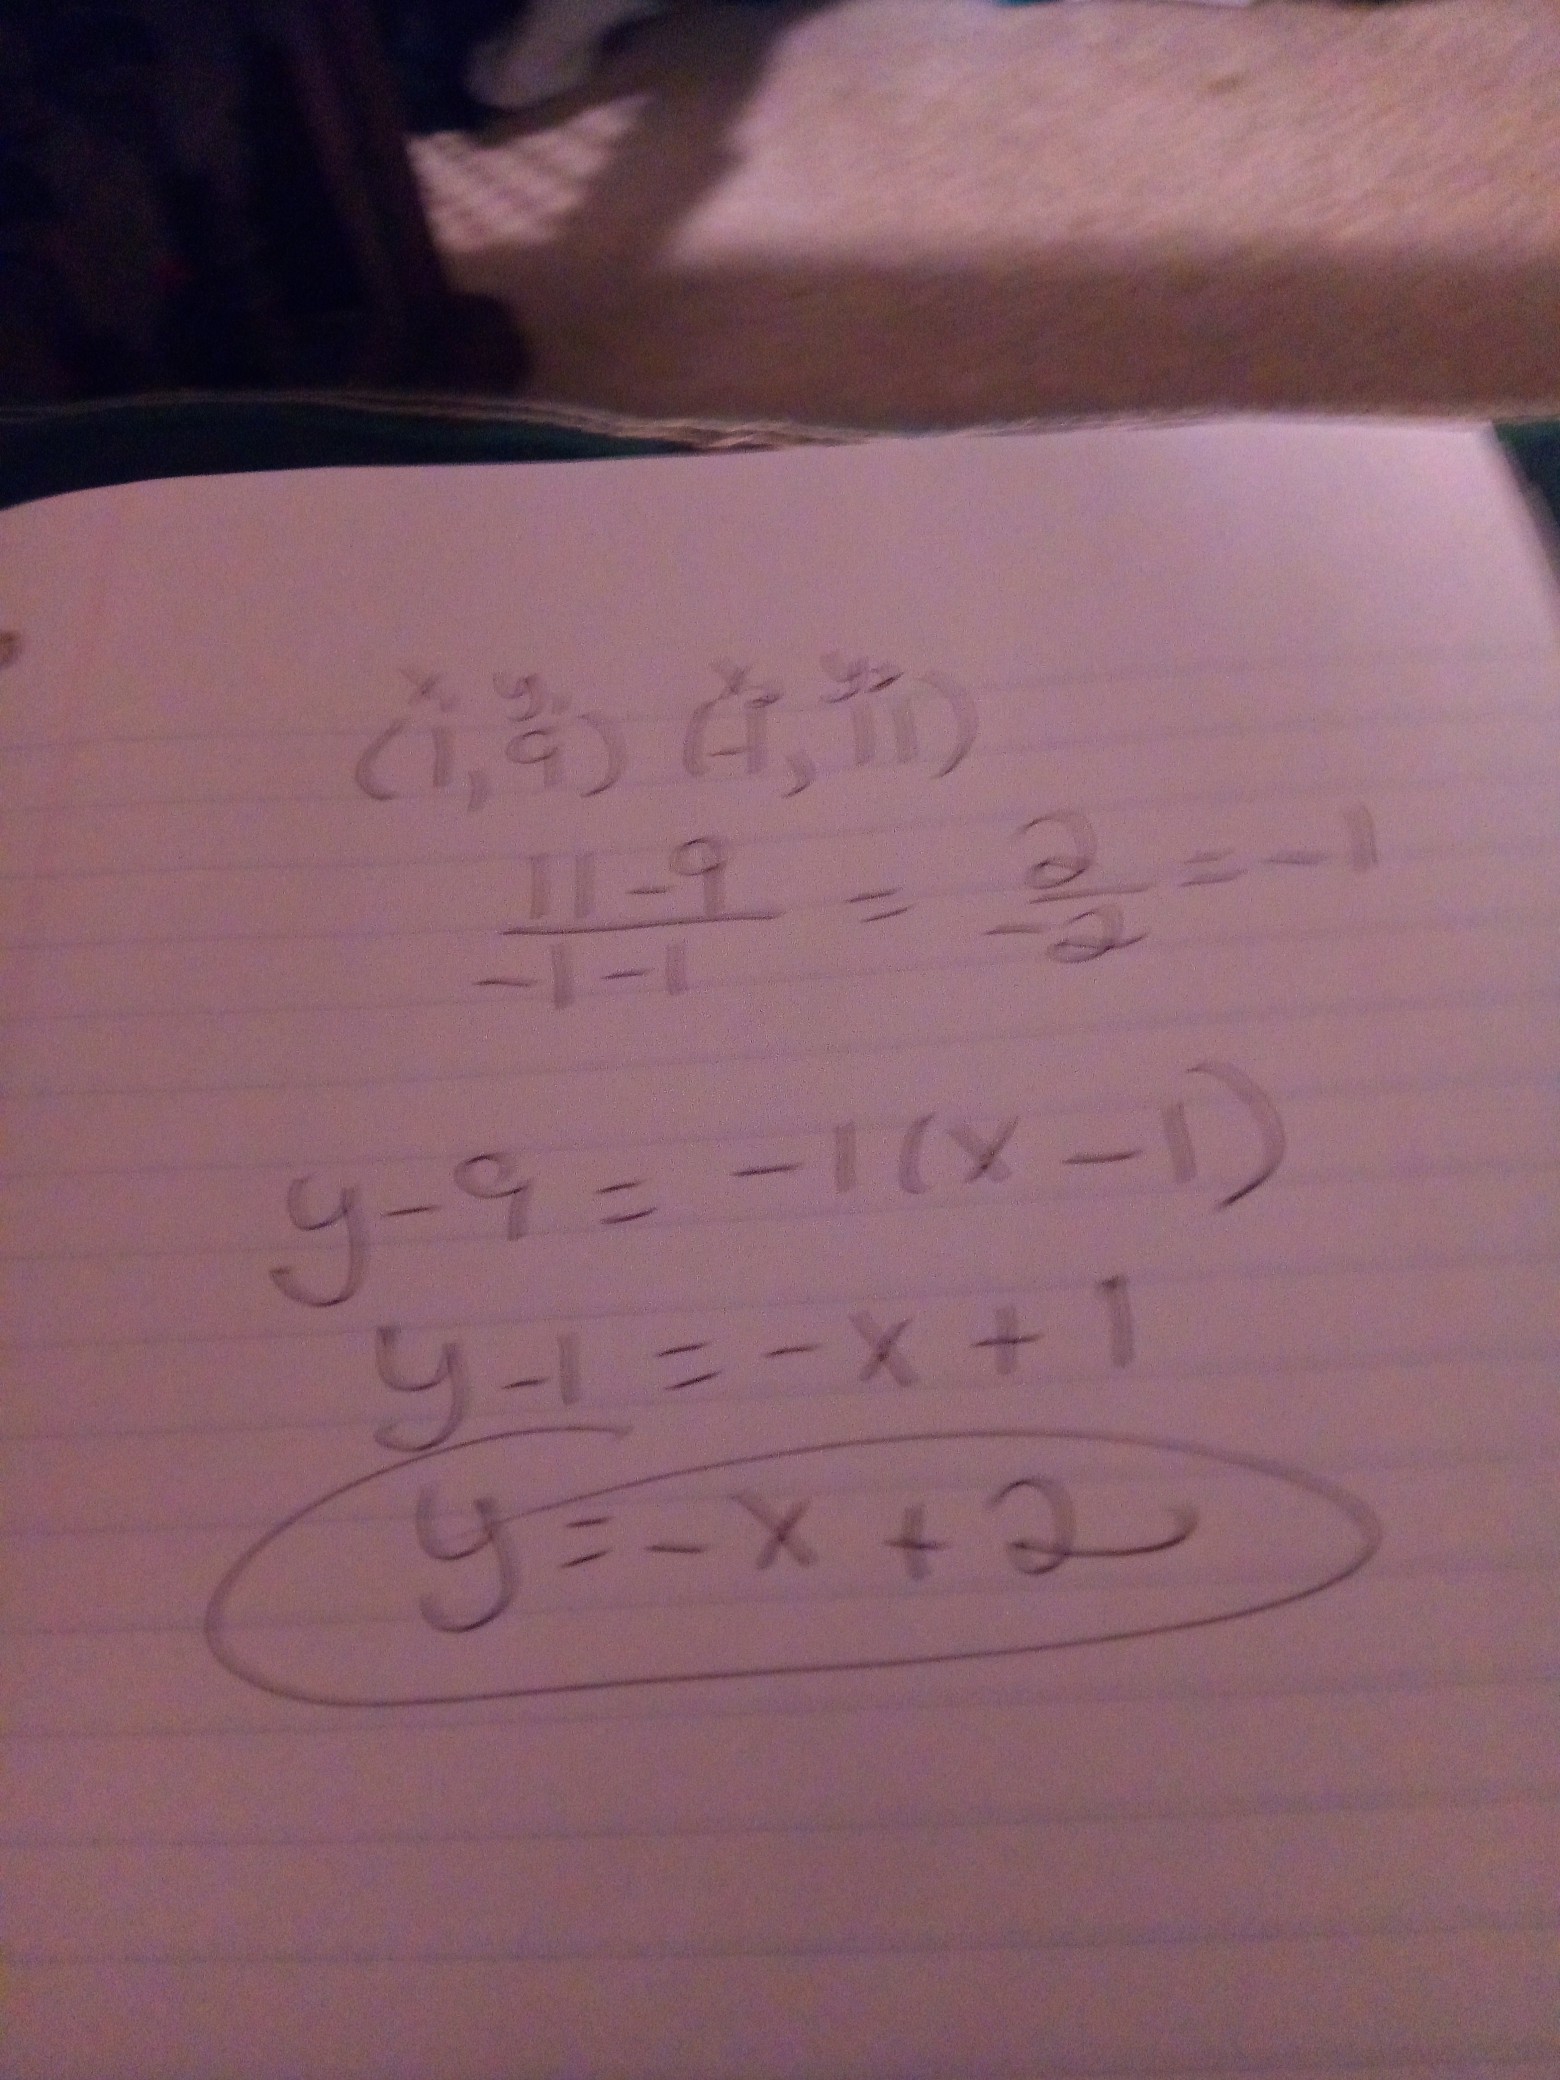 x₁ y₁ x₂ y₂
(1, 9) (-1, 11)
11-9 / -1-1 = 2/-2 = -1
y-9 = -1(x-1)
y-1 = -x+1
y = -x+2